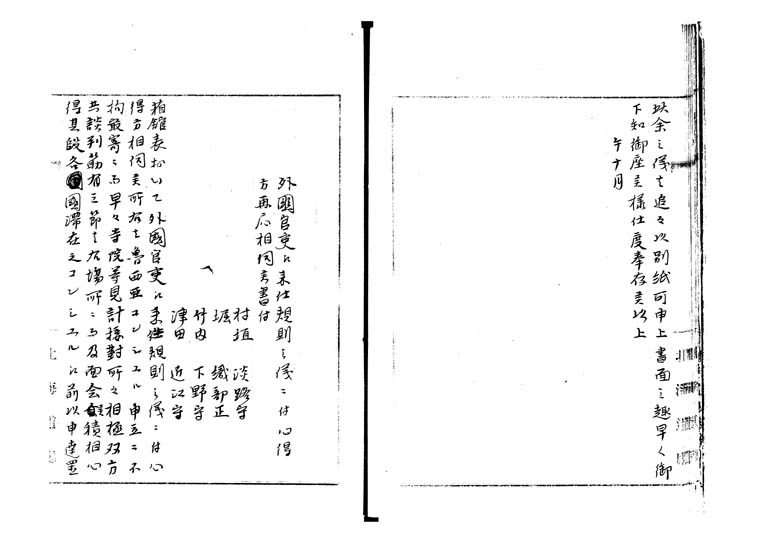 以余之儀者追々以別紙可申上書面之趣早々御
下知御座候様仕度奉存候以上
午十月
外國官吏江来仕規則之儀ニ付心得
方再応相伺候書付
村垣 淡路守
堀 織部正
竹内 下野守
津田 近江守
箱館表おいて外國官吏江来往規則之儀ニ付心
得方相伺候所右者魯西亜コンシユル申立ニ不
拘最寄ニ而早々寺院等見計接對所々相極双方
共談判筋有之節者右場所ニ而及面会候積相心
得其段各國滞在之コンシユル江前以申達置